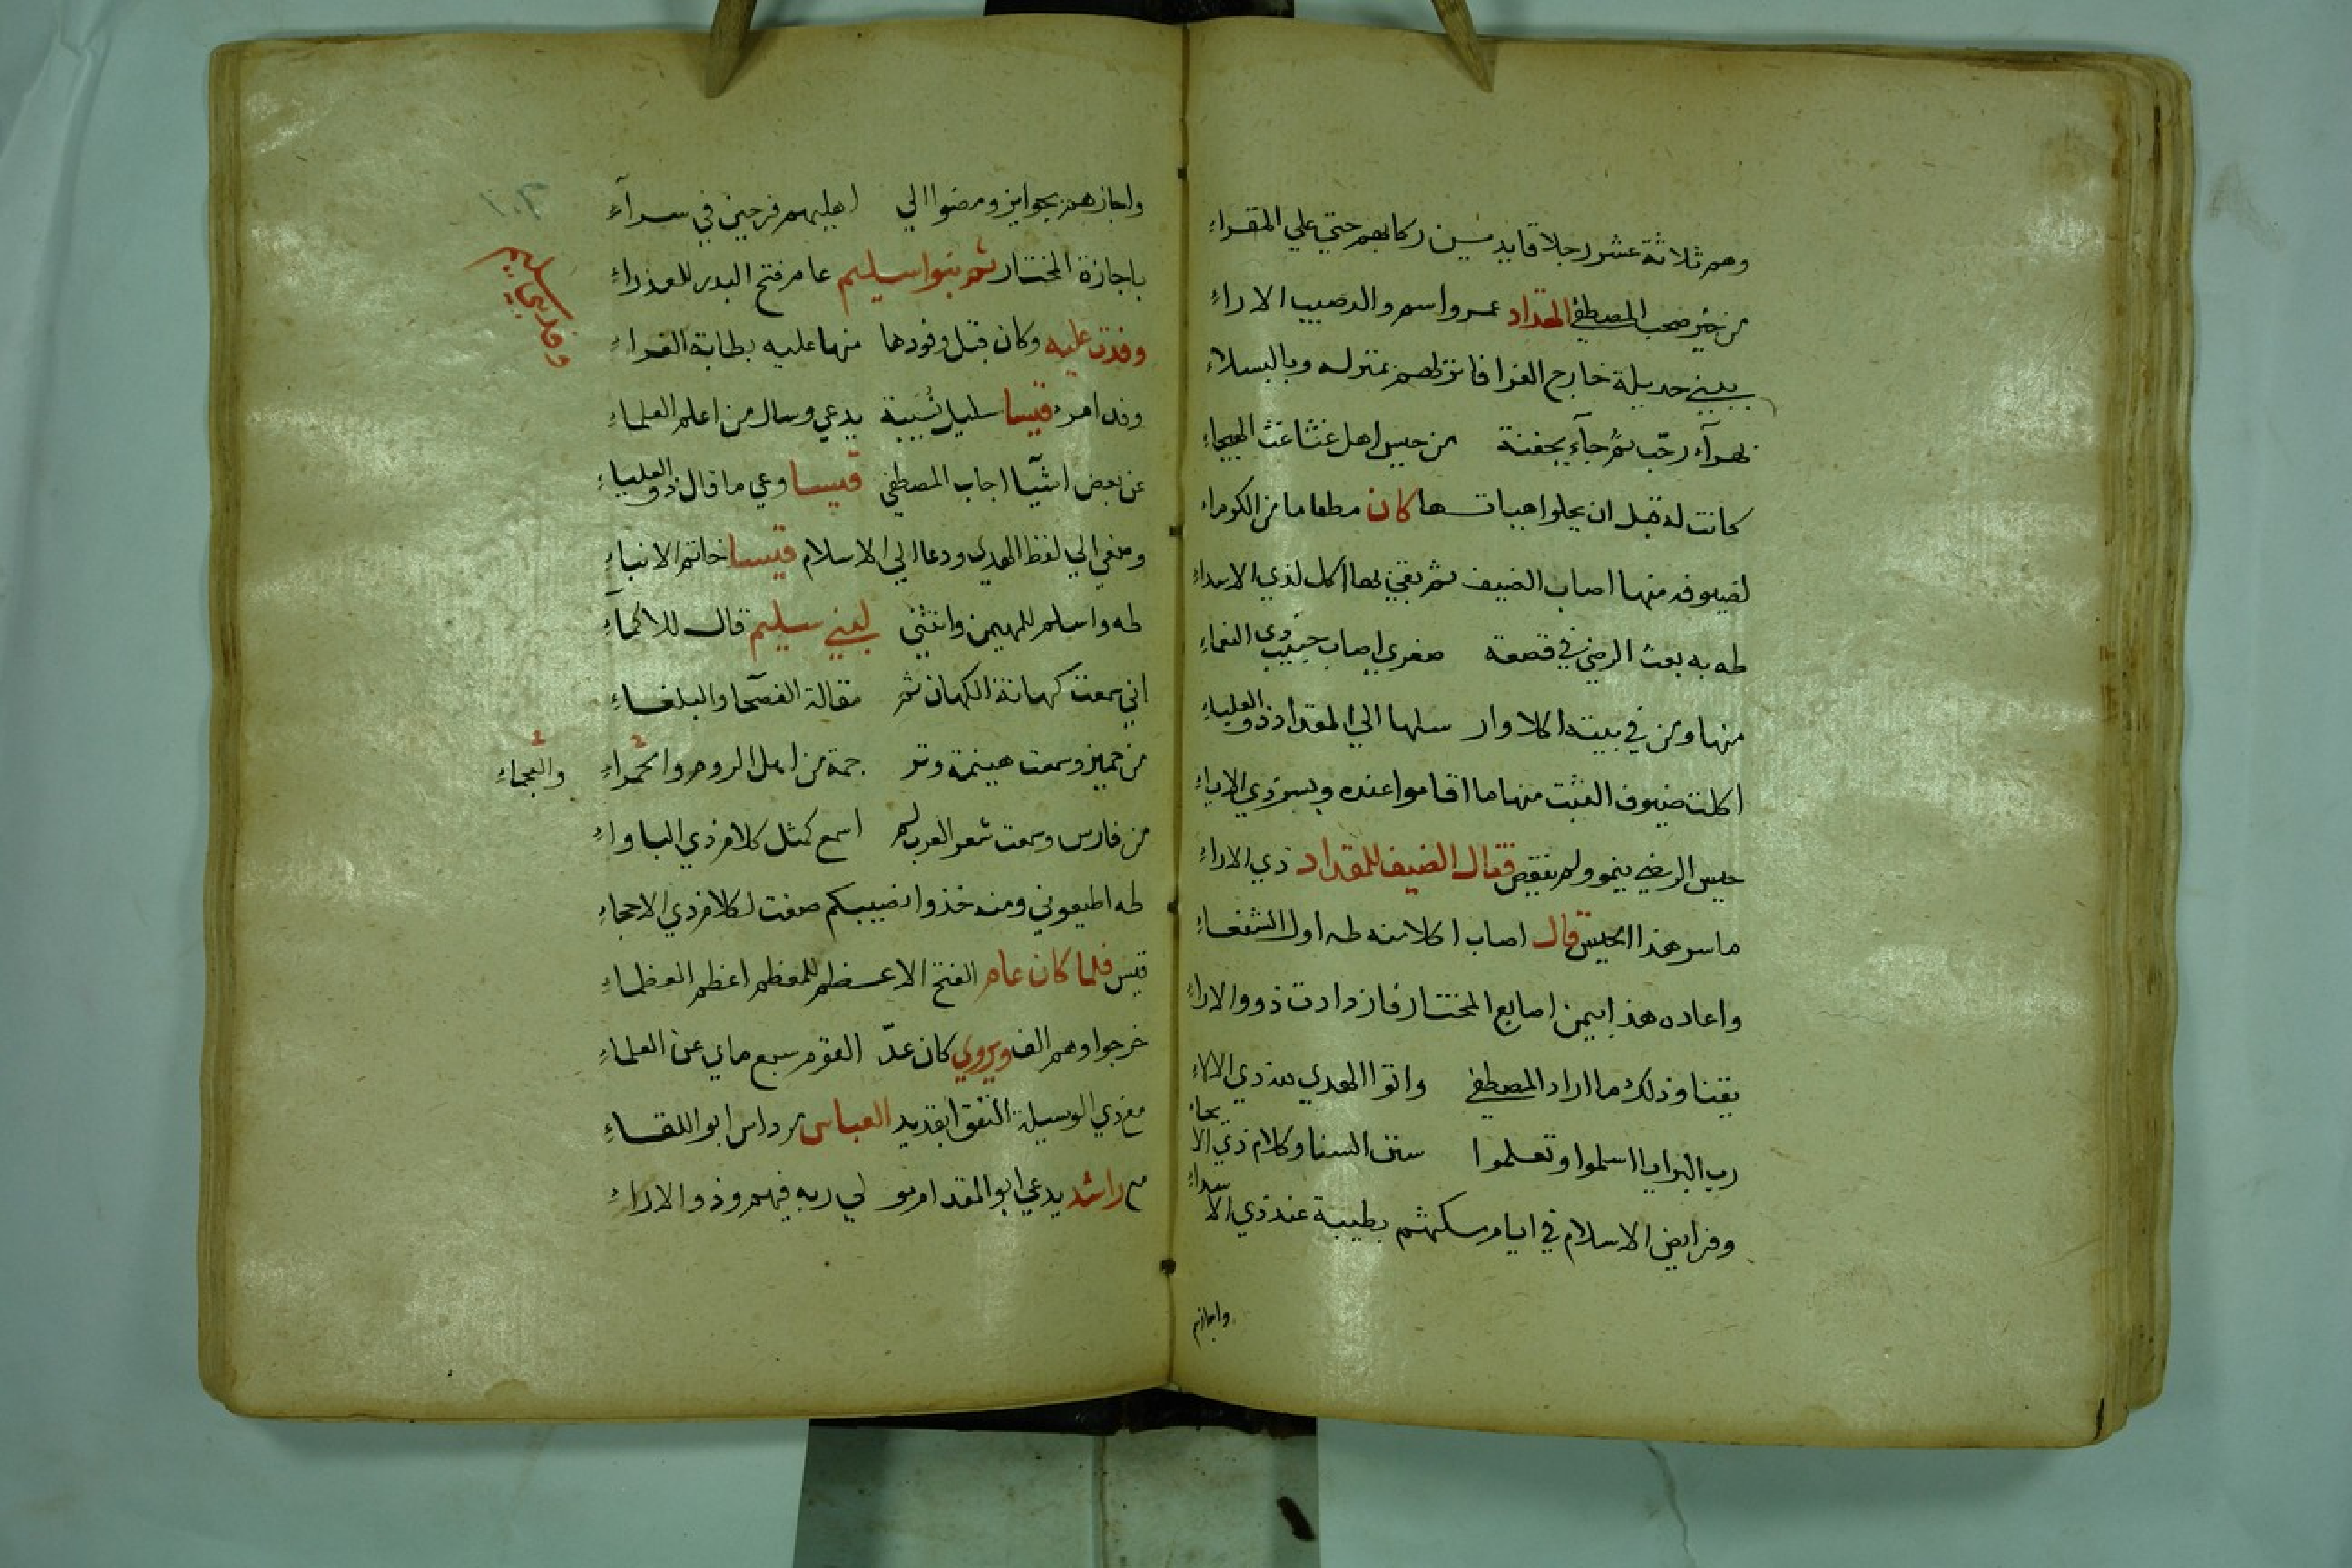 وهم ثلاثة عشر رجلا قايديين ركابهم حتي علي المقراء
من خير صحب المصطفي المقداد عمرو اسم والد صيب الاراء
ببني حديلة خارج الغرا فانزلهم بمنزله وبالبسلاء
بهرآء رحّب ثم جآء بجفنة من حيس اهل غثا غث الهيجاء
كانت له قبل ان يحلوا هيات لها كان مطعاما من الكرماء
لضيوفه منها اصاب الضيف ثم بقي لها اكل لذي الاسداء
طه به بعث الرضي في قصعة صغري اصاب حبيب ذي النعماء
منها ومن في بيته اكلا وار سلها الي المقداد ذو العلياء
اكلت ضيوف الثبت منها ما اقاموا عنده وبسر ذي الاباء
حيس الرضي ينمو ولم ينقص فقال الضيف للمقداد ذي الاراء
ما سر هذا الحيس قال اصاب اكلا منه طه اول الشفعاء
واعاده هذا بيمن اصابع المختار فازدادت ذووا الاراء
يقينا وذلك ما اراد المصطفي واتوا الهدي من ذي الالاء
رب البرايا اسلموا وتعلموا سنن السنا وكلام ذي الا يحاء
وفرايض الاسلام في ايام سكنهم بطيبة عند ذي الا سداء
واجازهم
واجازهم بجوايز ومضوا الي اهليهم فرحين في سرآء
باجازة المختار ثم بنوا سليم عام فتح البدر للعذراء
وفد بني سليم
وفدت عليه وكان قبل وفودها منها عليه بطابة الغراء
وفد امرء قيسا سليل نُسَيبة يدعي وسال من اعلم العلماء
عن بعض اشيآ اجاب المصطفي قيسا وعي ما قال ذو العلياء
وصغي الي لفظ الهدي ودعا الي الاسلام قيسا خاتم الانباء
طه واسلم للمهيمن وانثني لبني سليم قال للاكمآء
اني سمعت كهانة الكهان ثم مقالة الفصحا والبلغاء
من حمير وسمعت هينمة وتر جمة من اهل الروم والحمراء
والعجماء
من فارس وسمعت شعر العرب لم اسمع كمثل كلام ذي الباواء
طه اطيعوني ومنه خذوا نصيبكم صغت لكلام ذي الاحجاء
قيس فلما كان عام الفتح الاعظم للمعظم اعظم العظماء
خرجوا وهم الف ويروي كان عدّ القوم سبع ماي عن العلماء
مع ذي الوسيلة التقوا بقديد العباس مرداس ابو اللقاء
مع راشد يدعي ابو المقدام مو لي ربه فيهم وذو الاراء